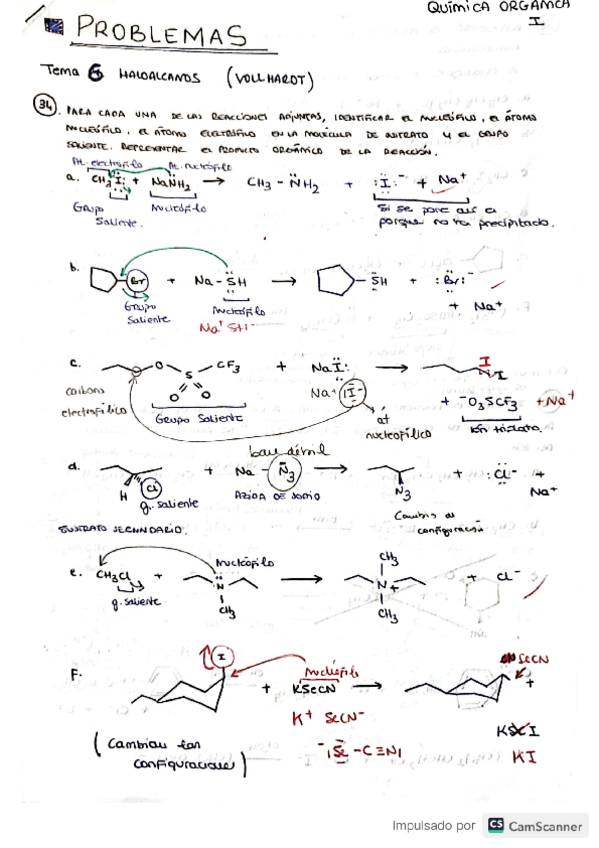 QUÍMICA ORGÁNICA
I
PROBLEMAS
Tema 6 HALOALCANOS (VOLLHARDT)
34. PARA CADA UNA DE LAS REACCIONES ADJUNTAS, IDENTIFICAR EL NUCLEÓFILO, EL ÁTOMO
NUCLEÓFILO, EL ÁTOMO ELECTRÓFILO EN LA MOLÉCULA DE SUSTRATO Y EL GRUPO
SALIENTE. REPRESENTAR EL PRODUCTO ORGÁNICO DE LA REACCIÓN.
At. electrófilo At. nucleófilo
a. CH3I: + NaNH2 → CH3 - NH2 + :I:⁻ + Na+
Grupo Saliente. Nucleófilo Si se pone así es
porque no va precipitado.
b. Br + Na - SH → SH + :Br:⁻
Grupo Saliente Nucleófilo + Na+
Na+ SH⁻
c. O S CF3 + NaI: → I
O O Na+ I⁻
carbono electrofílico Grupo Saliente at nucleofílico + ⁻O3SCF3 + Na+
ión triflato.
base débil
d. H Cl + Na - N3 → N3 + :Cl⁻ + Na+
g. saliente AZIDA DE SODIO Cambio de configuración
SUSTRATO SECUNDARIO.
e. CH3Cl + N CH3 → CH3 N+ CH3 + Cl⁻
g. saliente nucleófilo
F. I + KSeCN → SeCN +
nucleófilo
K+ SeCN⁻ KI
(Cambian las configuraciones) ⁻|Se - C≡N| KI
Impulsado por CS CamScanner